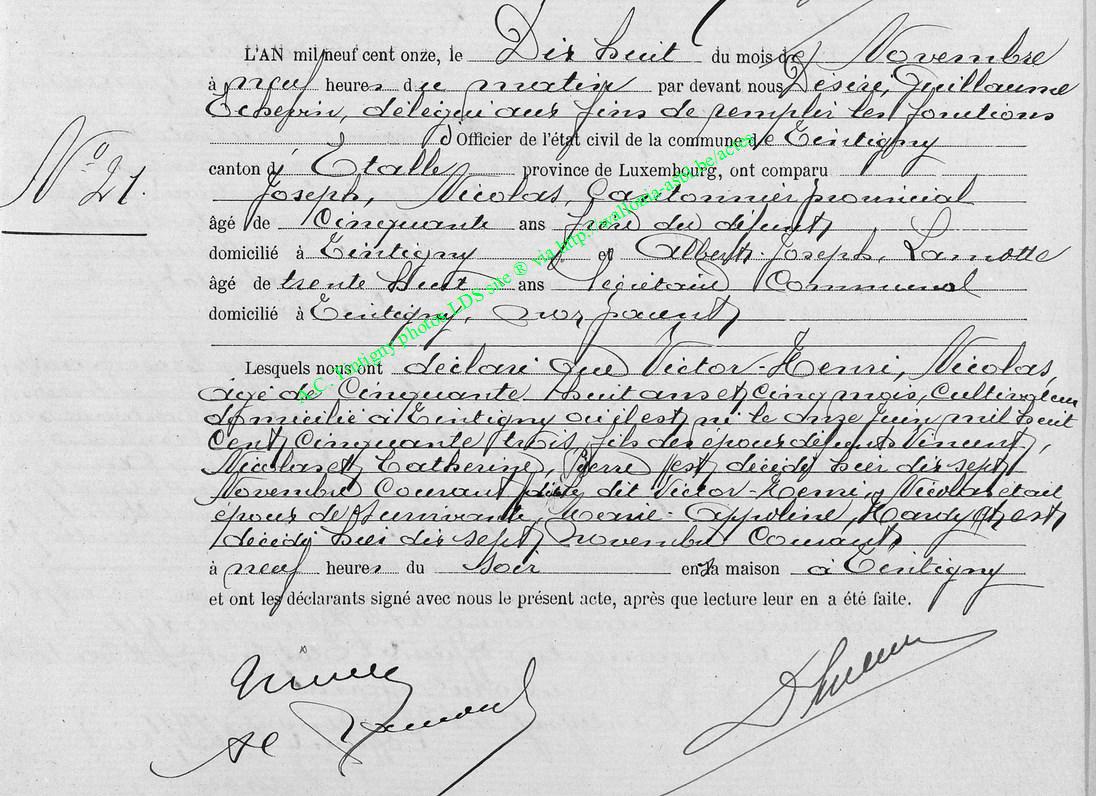 L'AN mil neuf cent onze, le Dix huit du mois de Novembre
à neuf heures du matin par devant nous Désiré, Guillaume
Echevin, délégué aux fins de remplir les fonctions
d'Officier de l'état civil de la commune de Tintigny
N° 21
canton d'Etalle province de Luxembourg, ont comparu
Joseph, Nicolas, Cantonnier provincial
âgé de Cinquante ans frère du défunt
domicilié à Tintigny et Albert-Joseph, Lamotte
âgé de trente huit ans Secrétaire Communal
domicilié à Tintigny, non parent
Lesquels nous ont déclaré que Victor-Henri, Nicolas,
âgé de Cinquante huit ans et cinq mois, cultivateur
domicilié à Tintigny où il est né le onze Juin mil huit
cent cinquante trois, fils des époux défunts Vincent,
Nicolas et Catherine, Pierre est décédé hier dix sept
Novembre Courant dit Victor-Henri, Nicolas était
époux de survivante, Marie-Appoline, Hardy et est
décédé hier dix sept novembre courant
à neuf heures du soir en sa maison à Tintigny
et ont les déclarants signé avec nous le présent acte, après que lecture leur en a été faite.
A.C. Tintigny photos LDS site ® via http://wallonia-asbl.be/actes